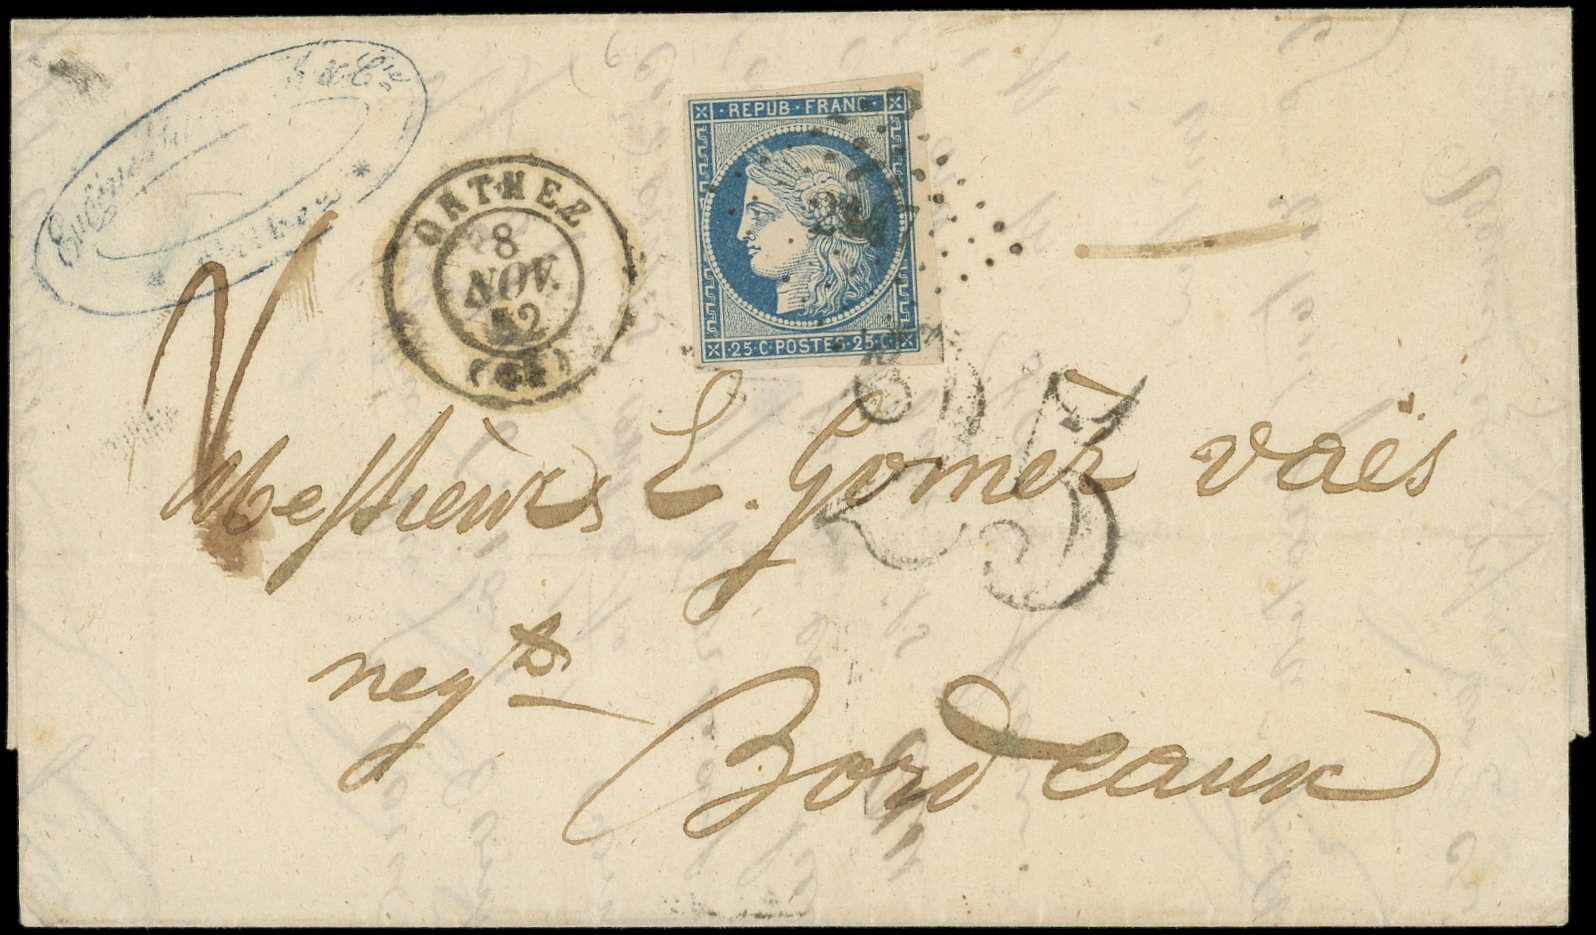 & Cie
REPUB · FRANC
25 · C · POSTES · 25 · C
ORTHEZ
8
NOV.
52
25
Messieurs L. Gomez Vaës
negts
Bordeaux